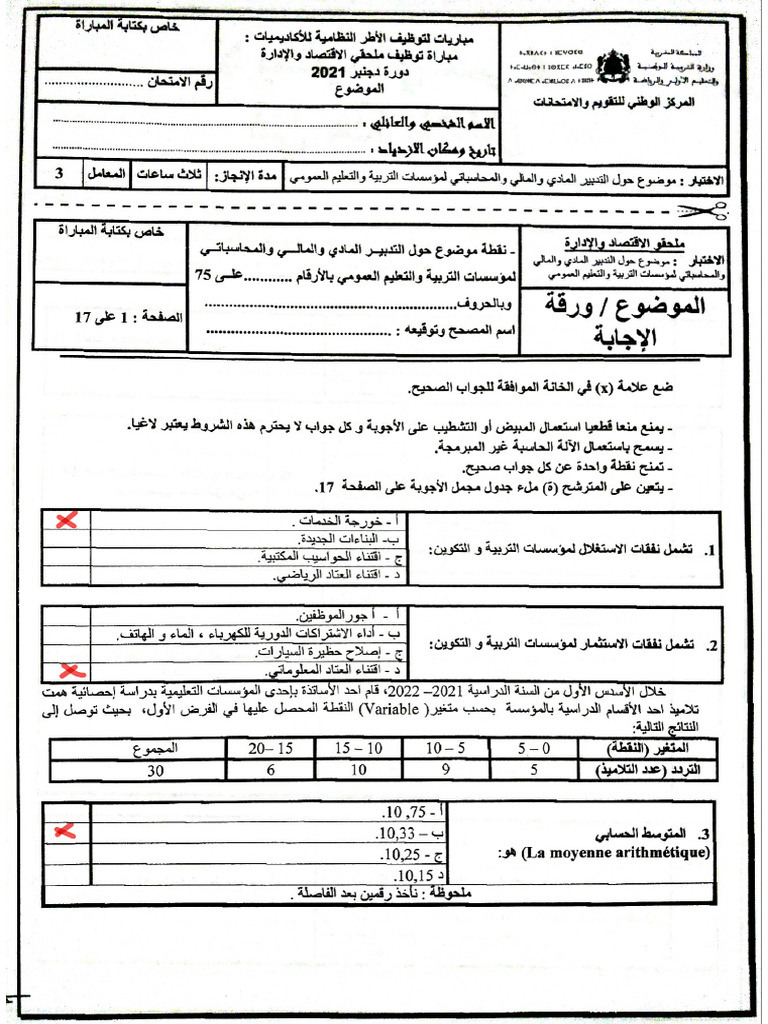 خاص بكتابة المباراة
رقم الامتحان ..........................
مباريات لتوظيف الأطر النظامية للأكاديميات :
مباراة توظيف ملحقي الاقتصاد والإدارة
دورة دجنبر 2021
الموضوع
المملكة المغربية
وزارة التربية الوطنية
والتعليم الأولي والرياضة
المركز الوطني للتقويم والامتحانات
الاسم الشخصي والعائلي :
تاريخ ومكان الازدياد :
الاختبار : موضوع حول التدبير المادي والمالي والمحاسباتي لمؤسسات التربية والتعليم العمومي
مدة الإنجاز: ثلاث ساعات المعامل 3
خاص بكتابة المباراة
الصفحة : 1 على 17
- نقطة موضوع حول التدبير المادي والمالي والمحاسباتي
لمؤسسات التربية والتعليم العمومي بالأرقام ...........على 75
وبالحروف...........................................
اسم المصحح وتوقيعه : ................................
ملحقو الاقتصاد والإدارة
الاختبار : موضوع حول التدبير المادي والمالي
والمحاسباتي لمؤسسات التربية والتعليم العمومي
الموضوع / ورقة
الإجابة
ضع علامة (x) في الخانة الموافقة للجواب الصحيح.
- يمنع منعا قطعيا استعمال المبيض أو التشطيب على الأجوبة و كل جواب لا يحترم هذه الشروط يعتبر لاغيا.
- يسمح باستعمال الآلة الحاسبة غير المبرمجة.
- تمنح نقطة واحدة عن كل جواب صحيح.
- يتعين على المترشح (ة) ملء جدول مجمل الأجوبة على الصفحة 17.
1. تشمل نفقات الاستغلال لمؤسسات التربية و التكوين:
أ - خورجة الخدمات .
ب- البناءات الجديدة.
ج - اقتناء الحواسيب المكتبية.
د - اقتناء العتاد الرياضي.
2. تشمل نفقات الاستثمار لمؤسسات التربية و التكوين:
أ - أجورالموظفين.
ب - أداء الاشتراكات الدورية للكهرباء ، الماء و الهاتف.
ج - إصلاح حظيرة السيارات.
د - اقتناء العتاد المعلوماتي.
خلال الأسدس الأول من السنة الدراسية 2021– 2022، قام احد الأساتذة بإحدى المؤسسات التعليمية بدراسة إحصائية همت
تلاميذ احد الأقسام الدراسية بالمؤسسة بحسب متغير( Variable) النقطة المحصل عليها في الفرض الأول، بحيث توصل إلى
النتائج التالية:
المتغير (النقطة) 0 – 5 5 – 10 10 – 15 15 –20 المجموع
التردد (عدد التلاميذ) 5 9 10 6 30
3. المتوسط الحسابي
(La moyenne arithmétique) هو:
أ - 10,75.
ب – 10,33.
ج - 10,25.
د 10,15.
ملحوظة : نأخذ رقمين بعد الفاصلة .